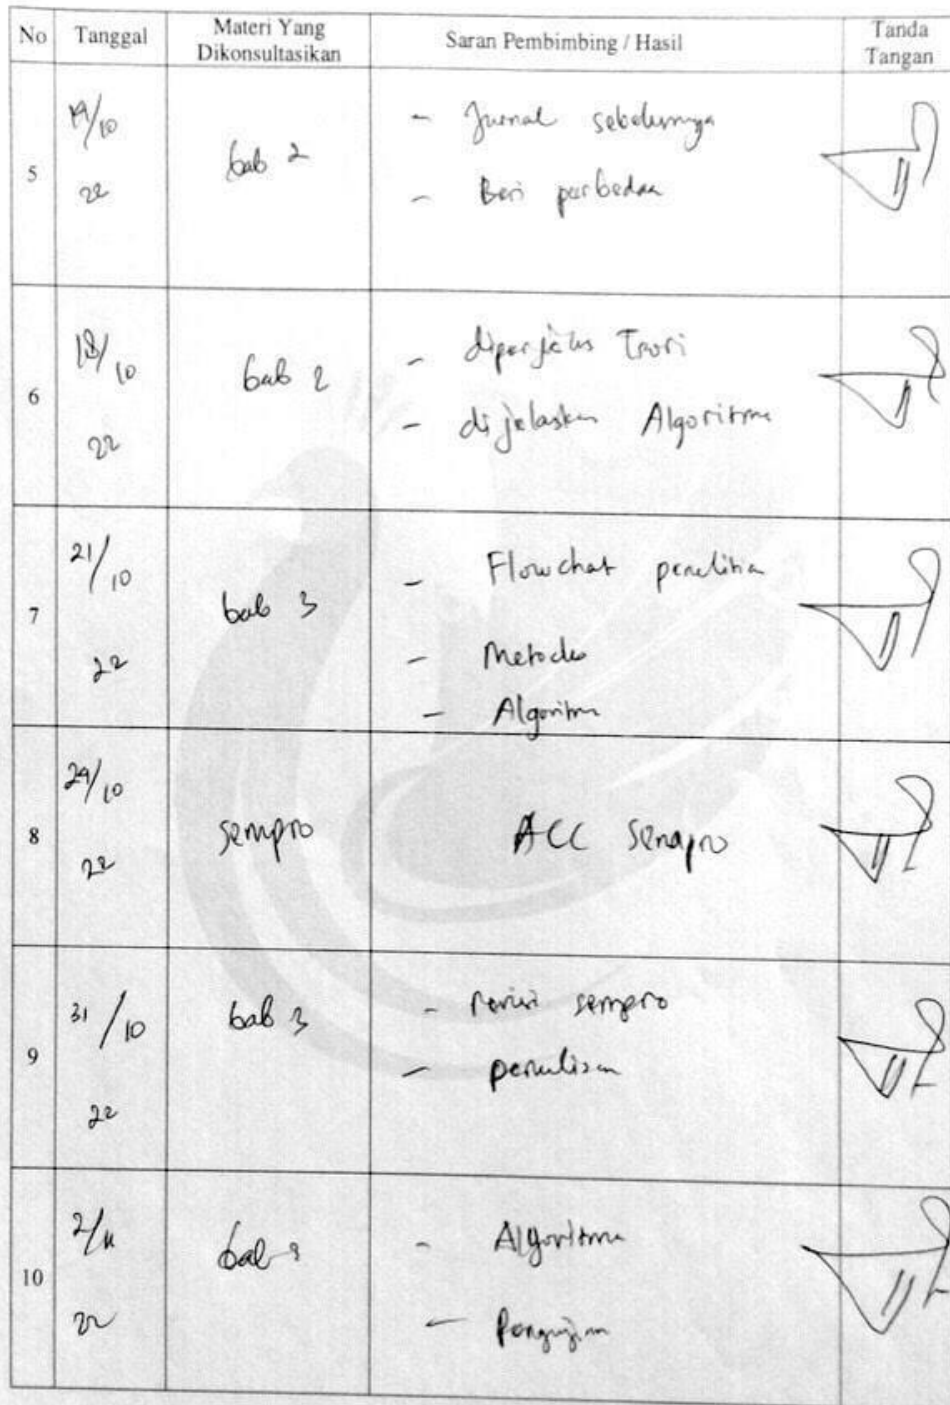 No Tanggal Materi Yang Dikonsultasikan Saran Pembimbing / Hasil Tanda Tangan
5
/10
22
bab 2
- Jurnal sebelumnya
- Beri perbedaan
6
18/10
22
bab 2
- diperjelas Teori
- dijelaskan Algoritma
7
21/10
22
bab 3
- Flowchat penelitian
- Metode
- Algoritma
8
24/10
22
sempro
ACC sempro
9
31/10
22
bab 3
- revisi sempro
- penulisan
10
2/11
22
bab
- Algoritma
- Pengujian